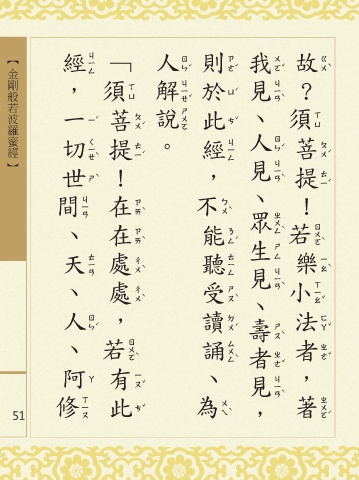 故？須菩提！若樂小法者，著
我見、人見、眾生見、壽者見，
則於此經，不能聽受讀誦、為
人解說。
「須菩提！在在處處，若有此
經，一切世間、天、人、阿修
【金剛般若波羅蜜經】
51